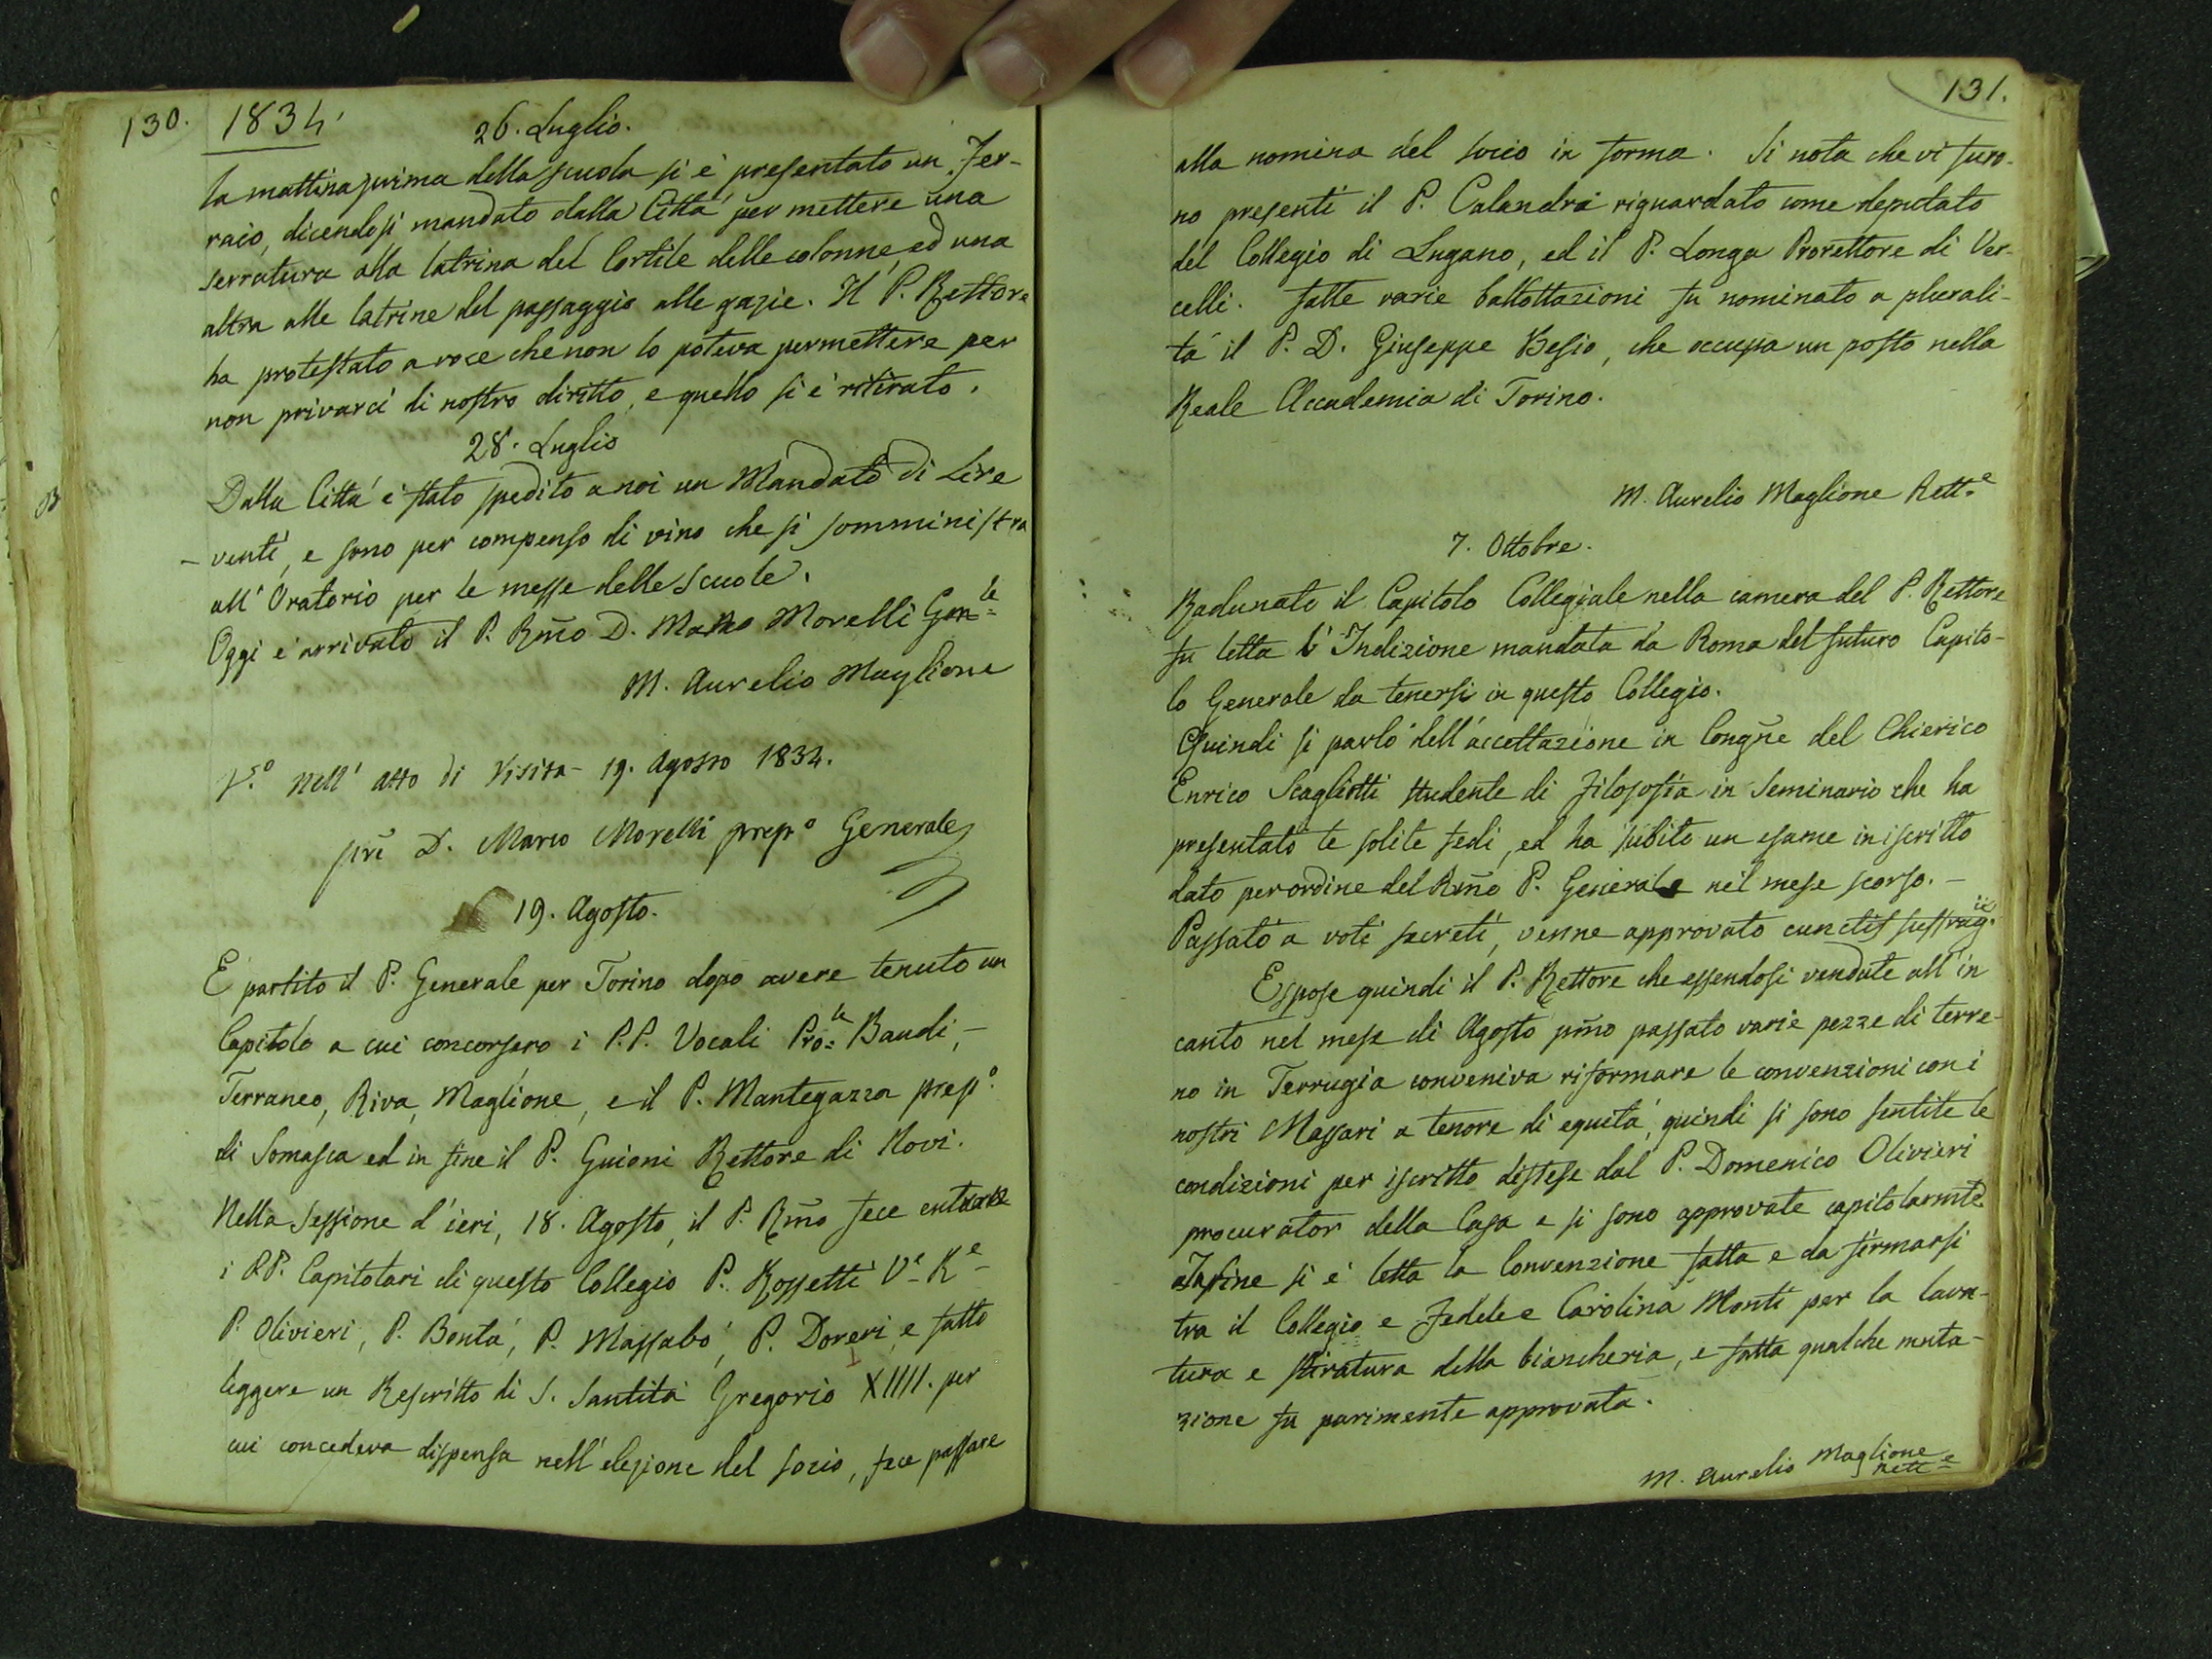 130. 1834.
26. Luglio.
la mattina prima della scuola si è presentato un Fer-
raio, dicendosi mandato dalla Città per mettere una
serratura alla latrina del Cortile delle colonne, ed una
altra alle latrine del passaggio alle gazie. Il P. Rettore
ha protestato a voce che non lo poteva permettere per
non privarci di nostro diritto, e quello si è ritirato.
28. Luglio
Dalla Città è stato spedito a noi un Mandato di Lire
- venti, e sono per compenso di vino che si somministra
all' Oratorio per le messe delle Scuole.
Oggi è arrivato il P. Rm̃o D. Marco Morelli Gen.le
M. Aurelio Maglione
V.so Nell' atto di Visita - 19. Agosto 1834.
prẽ D. Marco Morelli prep.o Generale
19. Agosto.
E partito il P. Generale per Torino dopo avere tenuto un
Capitolo a cui concorsero i P.P. Vocali Pro.le Baudi,
Terraneo, Riva, Maglione, e il P. Mantegazza prep.o
di Somasca ed in fine il P. Guioni Rettore di Novi.
Nella Sessione d' ieri, 18. Agosto, il P. Rm̃o fece entrare
i PP. Capitolari di questo Collegio P. Rossetti V.e R.e
P. Olivieri, P. Bontà, P. Massabò, P. Doreri, e fatto
leggere un Rescritto di S. Santità Gregorio XIIII. per
cui concedeva dispensa nell' elezione del socio, fece passare
131.
alla nomina del socio in forma. Si nota che vi furo-
no presenti il P. Calandri riguardato come deputato
del Collegio di Lugano, ed il P. Longa Prorettore di Ver-
celli. Fatte varie ballottazioni fu nominato a plurali-
tà il P. D. Giuseppe Besio, che occupa un posto nella
Reale Accademia di Torino.
M. Aurelio Maglione Rett.e
7. Ottobre.
Radunato il Capitolo Collegiale nella camera del P. Rettore
fu letta l' Indizione mandata da Roma del futuro Capito-
lo Generale da tenersi in questo Collegio.
Quindi si parlò dell' accettazione in Congñe del Chierico
Enrico Scagliotti studente di Filosofia in Seminario che ha
presentato le solite fedi, ed ha subito un esame in iscritto
dato per ordine del Rm̃o P. Generale nel mese scorso. -
Passato a voti secreti, venne approvato cunctis suffrag.iis
Espose quindi il P. Rettore che essendosi vendute all' in
canto nel mese di Agosto pm̃o passato varie pezze di terre-
no in Terrugia conveniva riformare le convenzioni con i
nostri Massari a tenore di equità, quindi si sono sentite le
condizioni per iscritto distese dal P. Domenico Olivieri
procurator della Casa e si sono approvate capitolarmte
Infine si è letta la Convenzione fatta e da firmarsi
tra il Collegio e Fedele e Carolina Monti per la lava-
tura e stiratura della biancheria, e fatta qualche muta-
zione fu parimente approvata.
M. Aurelio Maglione
Rett.e